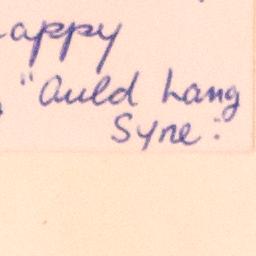 appy
"Auld Lang
Syne."